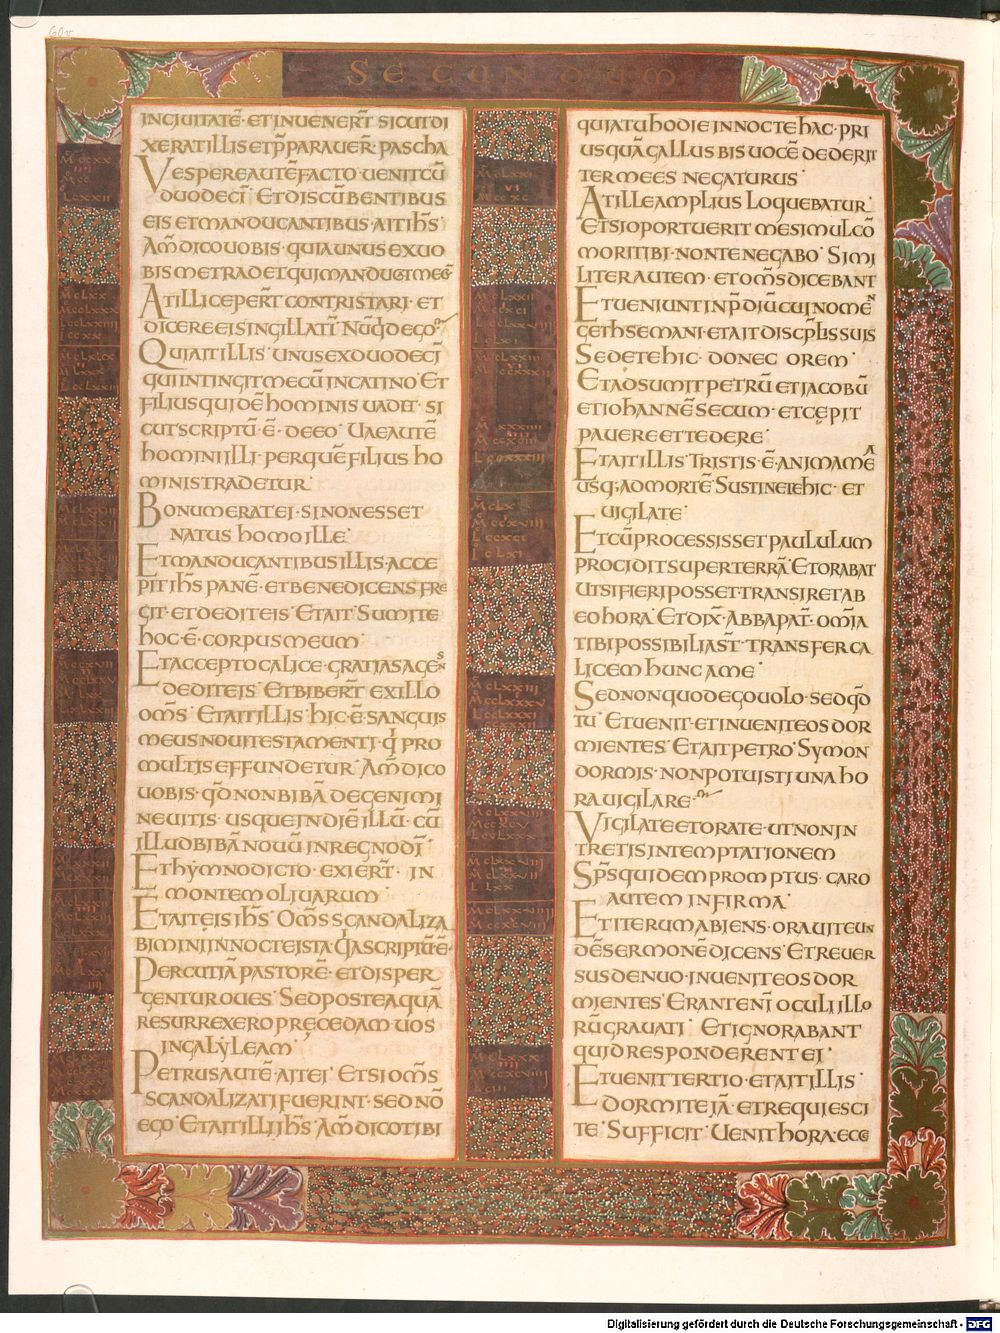 60v
SECUNDUM
INCIVITATĒ· ETINVENERT̄ SICUTDI
XERATILLIS ETP̄PARAVER̄· PASCHA
VESPEREAUTĒFACTO· UENITCŪ
DUODECĪ· ETDISCŪBENTIBUS
EIS ETMANDUCANTIBUS· AITIH̄S·
AM̄DICOUOBIS· QUIAUNUS EXUO
BISMETRADETQUIMANDUCATMECŪ
ATILLICEPERT̄ CONTRISTARI· ET
DICEREEISINGILLATĪ· NŪQDEGO
QUIAITILLIS· UNUSEXDUODECĪ
QUIINTINGITMECŪINCATINO· ET
FILIUSQUIDĒHOMINIS UADET· SI
CUTSCRIPTŪ·Ē· DEEO· UAEAUTĒ
HOMINIILLI· PERQUĒFILIUS HO
MINISTRADETUR
BONUMERATEI· SINONESSET
NATUS HOMOILLE·
ETMANDUCANTIBUSILLIS· ACCE
PITIH̄S PANĒ· ETBENEDICENS FRE
GIT· ETDEDITEIS· ETAIT· SUMITE
HOC·Ē· CORPUSMEUM·
ETACCEPTOCALICE· GRATIASAGENS
DEDITEIS· ETBIBERT̄ EXILLO
OMS̄· ETAITILLIS· HIC·Ē·SANGUIS
MEUSNOUITESTAMENTI· Q̄ PRO
MULTISEFFUNDETUR· AM̄DICO
UOBIS· QD̄NONBIBĀDEGENIMI
NEUITIS· USQUEINDIĒILLŪ· CŪ
ILLUDBIBĀNOUŪINREGNODĪ·
ETHẎMNODICTO· EXIERT̄· IN
MONTEMOLIUARUM·
ETAITEISIH̄S· OMS̄SCANDALIZA
BIMINIINNOCTEISTA· QĪASCRIPTŪ·Ē·
PERCUTIĀPASTORĒ· ETDISPER
GENTUROUES· SEDPOSTEAQUĀ
RESURREXEROPRĘCEDAMUOS
INGALẎLEAM·
PETRUSAUTĒ· AITEI· ETSIOMS̄
SCANDALIZATIFUERINT· SEDNŌ
EGO· ETAITILLIIH̄S· AM̄DICOTIBI
QUIATUHODIEINNOCTEHAC· PRI
USQUĀGALLUSBISUOCĒDEDERIT
TERMEES NEGATURUS·
ATILLEAMPLIUS LOQUEBATUR·
ETSIOPORTUERIT MESIMULCŌ
MORITIBI· NONTENEGABO· SIMI
LITERAUTEM· ETOMS̄DICEBANT
ETUENIUNTINP̄DIŪCUINOMEN
GETHSEMANI· ETAITDISCP̄LISSUIS
SEDETEHIC· DONEC OREM·
ETADSUMITPETRŪ ETIACOBŪ
ETIOHANNĒSECUM· ETCĘPIT
PAUEREETTEDERE·
ETAITILLIS· TRISTIS·Ē· ANIMAMEA
USQ·ADMORTĒ· SUSTINETEHIC· ET
UIGILATE·
ETCŪPROCESSISSETPAULULUM
PROCIDITSUPERTERRĀ· ETORABAT
UTSIFIERIPOSSET· TRANSIRETAB
EOHORA· ETDIX̄· ABBAPAT̄· OMĪA
TIBIPOSSIBILIAST̄· TRANSFERCA
LICEMHUNCAME·
SEDNONQUODEGOUOLO· SEDQD̄
TU· ETUENIT· ETINUENITEOSDOR
MIENTES· ETAITPETRO· SYMON
DORMIS· NONPOTUISTIUNAHO
RAUIGILARE·
VIGILATEETORATE· UTNONIN
TRETISINTEMPTATIONEM
SP̄SQUIDEMPROMPTUS· CARO
AUTEM INFIRMA·
ETITERUMABIENS· ORAUITEUN
DĒSERMONĒDICENS· ETREUER
SUSDENUO· INUENITEOSDOR
MIENTES· ERANTENĪOCULIILLO
RŪGRAUATI· ETIGNORABANT
QUIDRESPONDERENTEI·
ETUENITTERTIO· ETAITILLIS·
DORMITEIĀ· ETREQUIESCI
TE· SUFFICIT· UENITHORA· ECCE
Digitalisierung gefördert durch die Deutsche Forschungsgemeinschaft - DFG